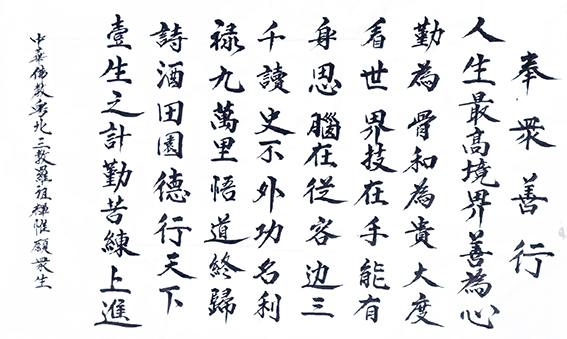 奉眾善行
人生最高境界善為心
勤為骨和為貴大度
看世界技在手能有
身思腦在從容边三
千讀史不外功名利
祿九萬里悟道終歸
詩酒田園德行天下
壹生之計勤苦練上進
中華佛教北三教羅祖願眾生